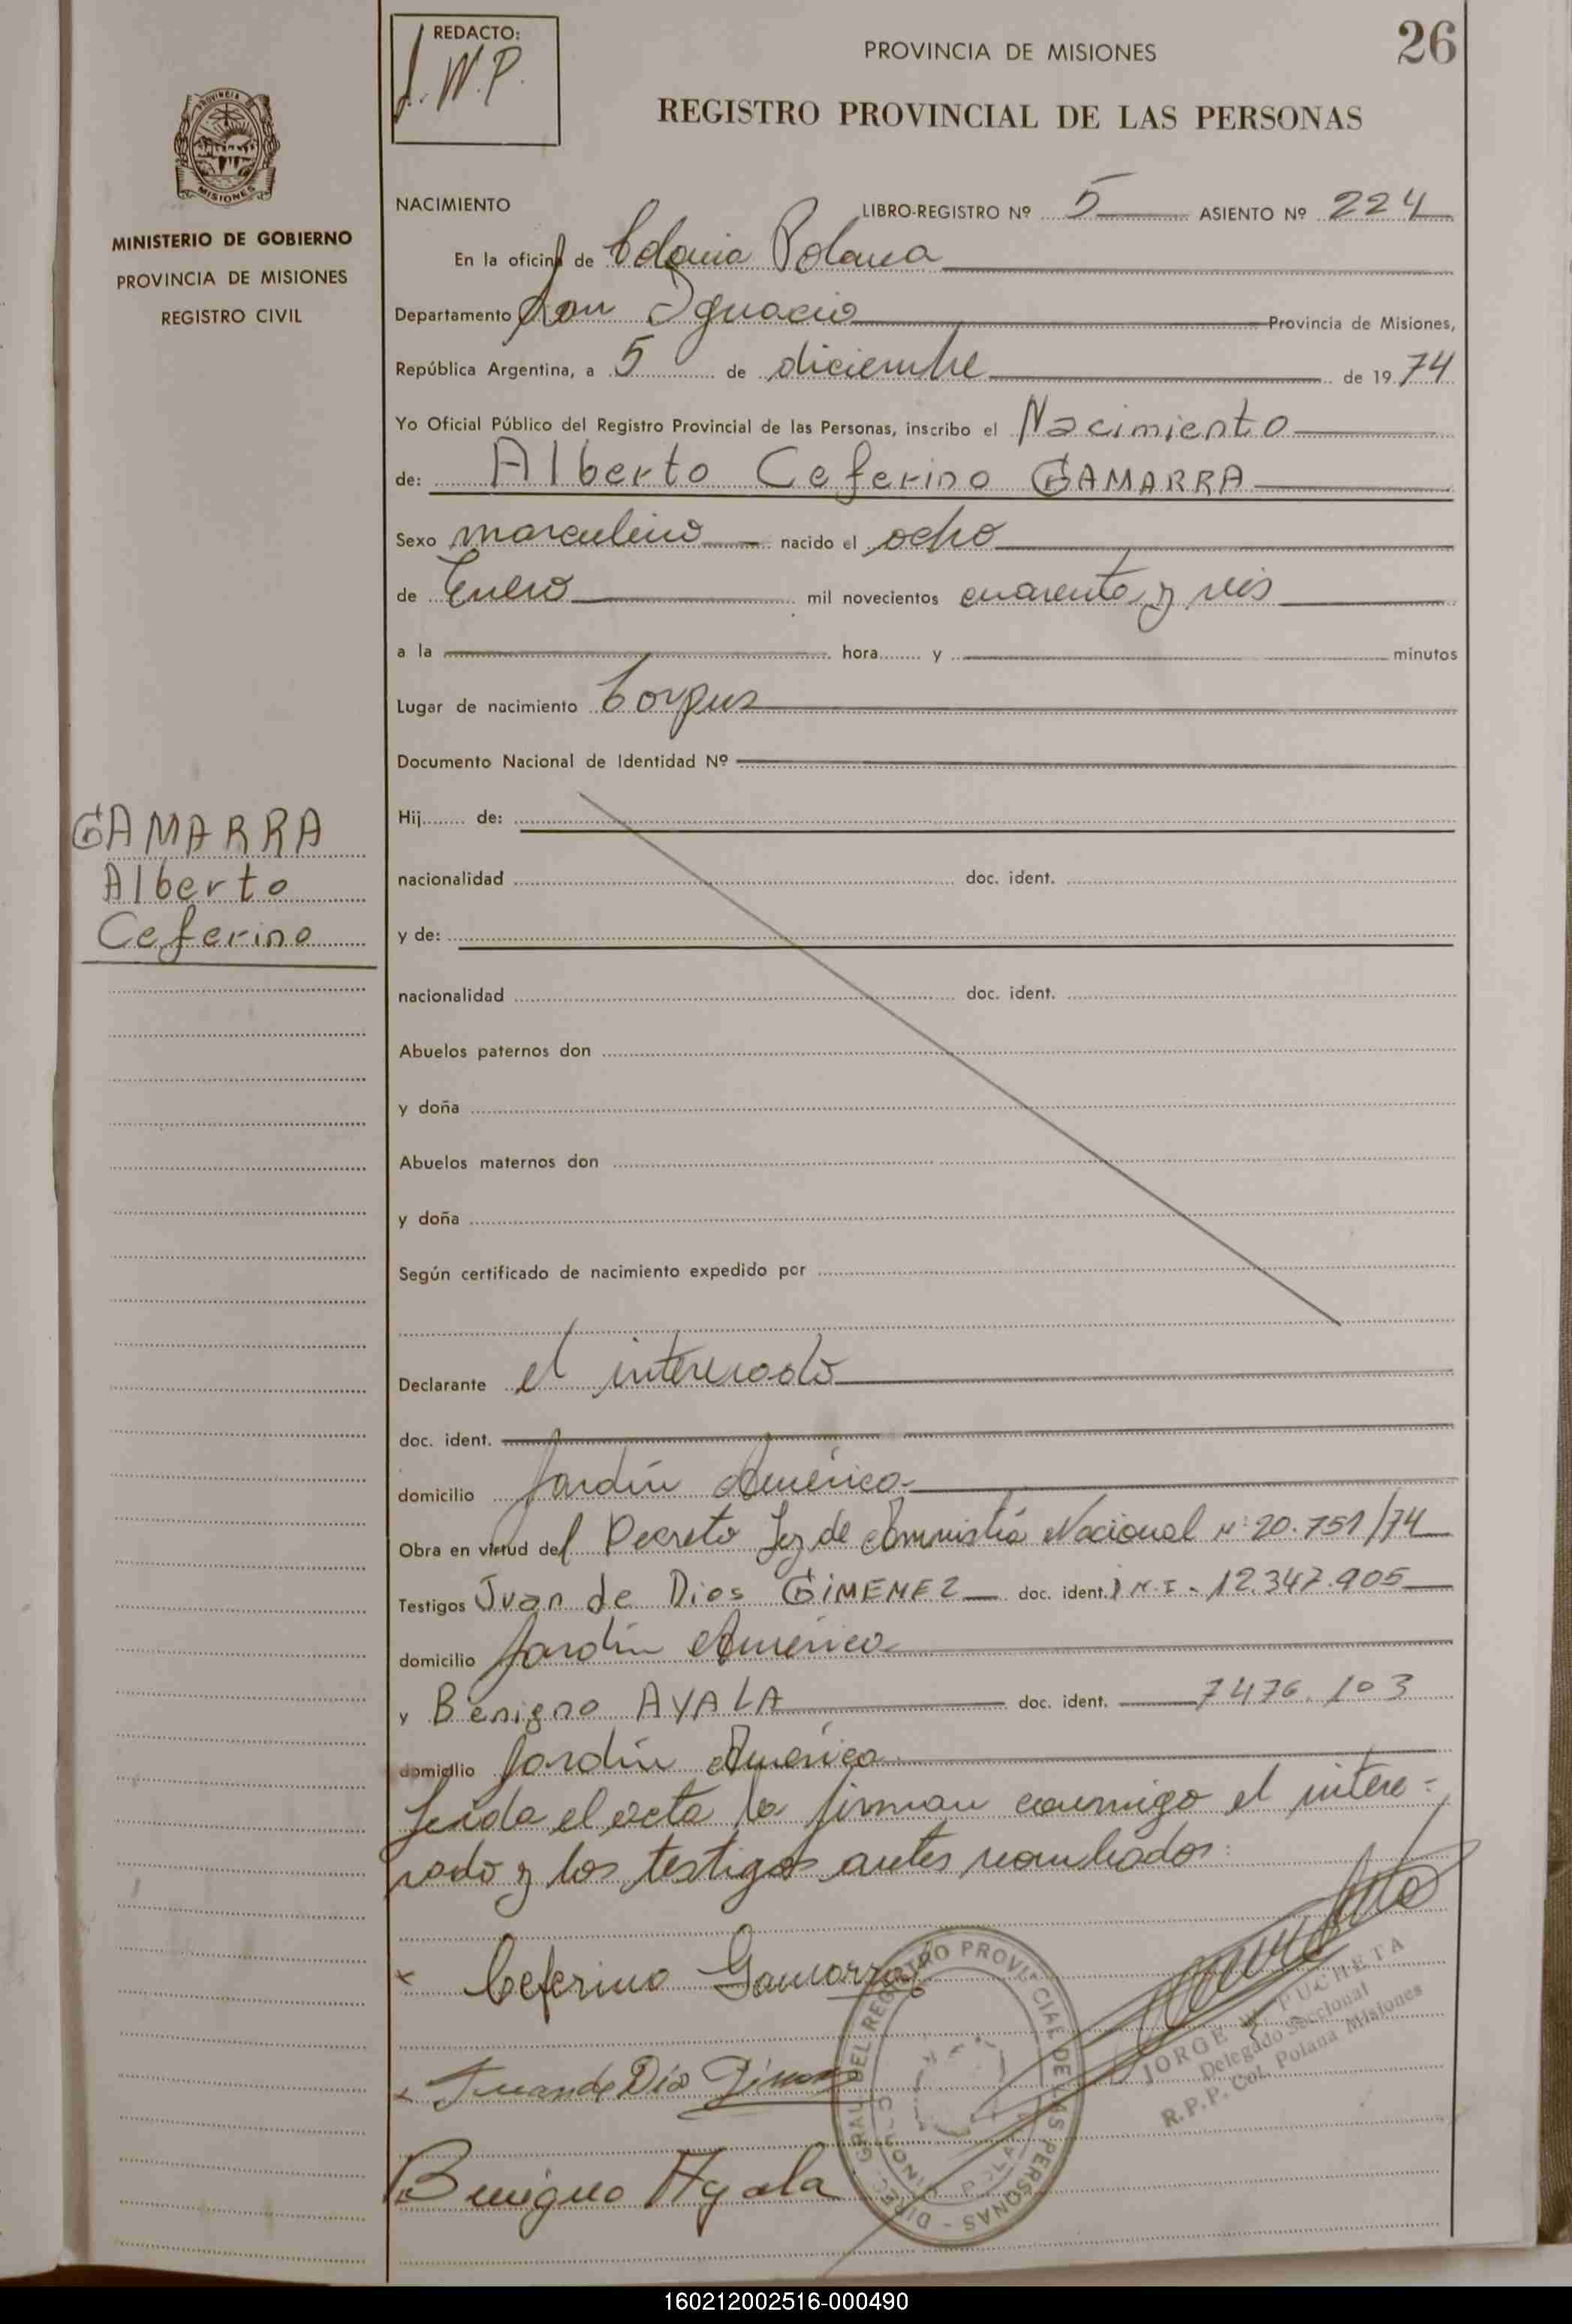 REDACTO:
J. W. P.
PROVINCIA DE MISIONES
26
REGISTRO PROVINCIAL DE LAS PERSONAS
PROVINCIA DE MISIONES
MINISTERIO DE GOBIERNO
PROVINCIA DE MISIONES
REGISTRO CIVIL
GAMARRA
Alberto
Ceferino
NACIMIENTO LIBRO-REGISTRO Nº 5 ASIENTO Nº 224
En la oficina de Colonia Polana
Departamento San Ignacio Provincia de Misiones,
República Argentina, a 5 de diciembre de 1974
Yo Oficial Público del Registro Provincial de las Personas, inscribo el Nacimiento
de: Alberto Ceferino GAMARRA
Sexo masculino nacido el ocho
de Enero mil novecientos cuarenta y seis
a la hora y minutos
Lugar de nacimiento Corpus
Documento Nacional de Identidad Nº
Hij de:
nacionalidad doc. ident.
y de:
nacionalidad doc. ident.
Abuelos paternos don
y doña
Abuelos maternos don
y doña
Según certificado de nacimiento expedido por
Declarante el interesado
doc. ident.
domicilio Jardín América
Obra en virtud del Decreto Ley de Amnistía Nacional Nº 20.751/74
Testigos Juan de Dios GIMENEZ doc. ident. D.N.I. 12.347.905
domicilio Jardín América
y Benigno AYALA doc. ident. 7476.103
domicilio Jardín América
Leida el acta la firman conmigo el intere=
sado y los testigos antes nombrados:
x Ceferino Gamarra
x Juan de Dio Gimenez
Benigno Ayala
DIREC. GRAL. DEL REGISTRO PROVINCIAL DE LAS PERSONAS -
COLONIA POLANA
JORGE W. FUCHETA
Delegado Seccional
R.P.P. Col. Polana Misiones
160212002516-000490